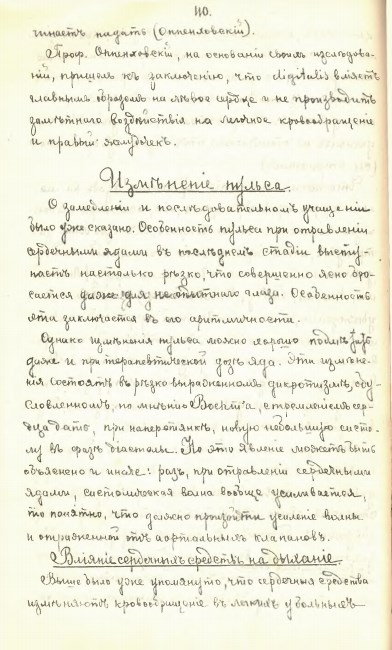 110.
чинаетъ падать (Оппенховскiй).
Проф. Оппенховскiй, на основанiи своихъ изслѣдова-
нiй, пришелъ къ заключенiю, что digitalis влiяетъ
главнымъ образомъ на лѣвое сердце и не производитъ
замѣтнаго воздѣйствiя на легочное кровообращенiе
и правый желудочекъ.
Измѣненiе пульса.
О замедленiи и послѣдовательномъ учащенiи
было уже сказано. Особенность пульса при отравленiи
сердечными ядами въ послѣднемъ стадiи высту-
паетъ настолько рѣзко, что совершенно ясно бро-
сается даже для неопытнаго глаза. Особенность
эта заключается въ его аритмичности.
Однако измѣненiя пульса можно хорошо
даже и при терапевтической дозѣ яда. Эти измѣне-
нiя состоятъ въ рѣзко выраженномъ дикротизмѣ, обу-
словленномъ, по мнѣнiю стремленiемъ сер-
дца дать, при новую небольшую систо-
лу въ фазѣ дiастолы. Но это явленiе можетъ быть
объяснено и иначе: разъ, при отравленiи сердечными
ядами, систолическая волна вообще усиливается,
то понятно, что должно произойти усиленiе волны
и отраженной отъ аортальныхъ клапановъ.
Влiянiе сердечныхъ средствъ на дыханiе.
Выше было уже упомянуто, что сердечныя средства
измѣняютъ кровообращенiе въ легкихъ у больныхъ